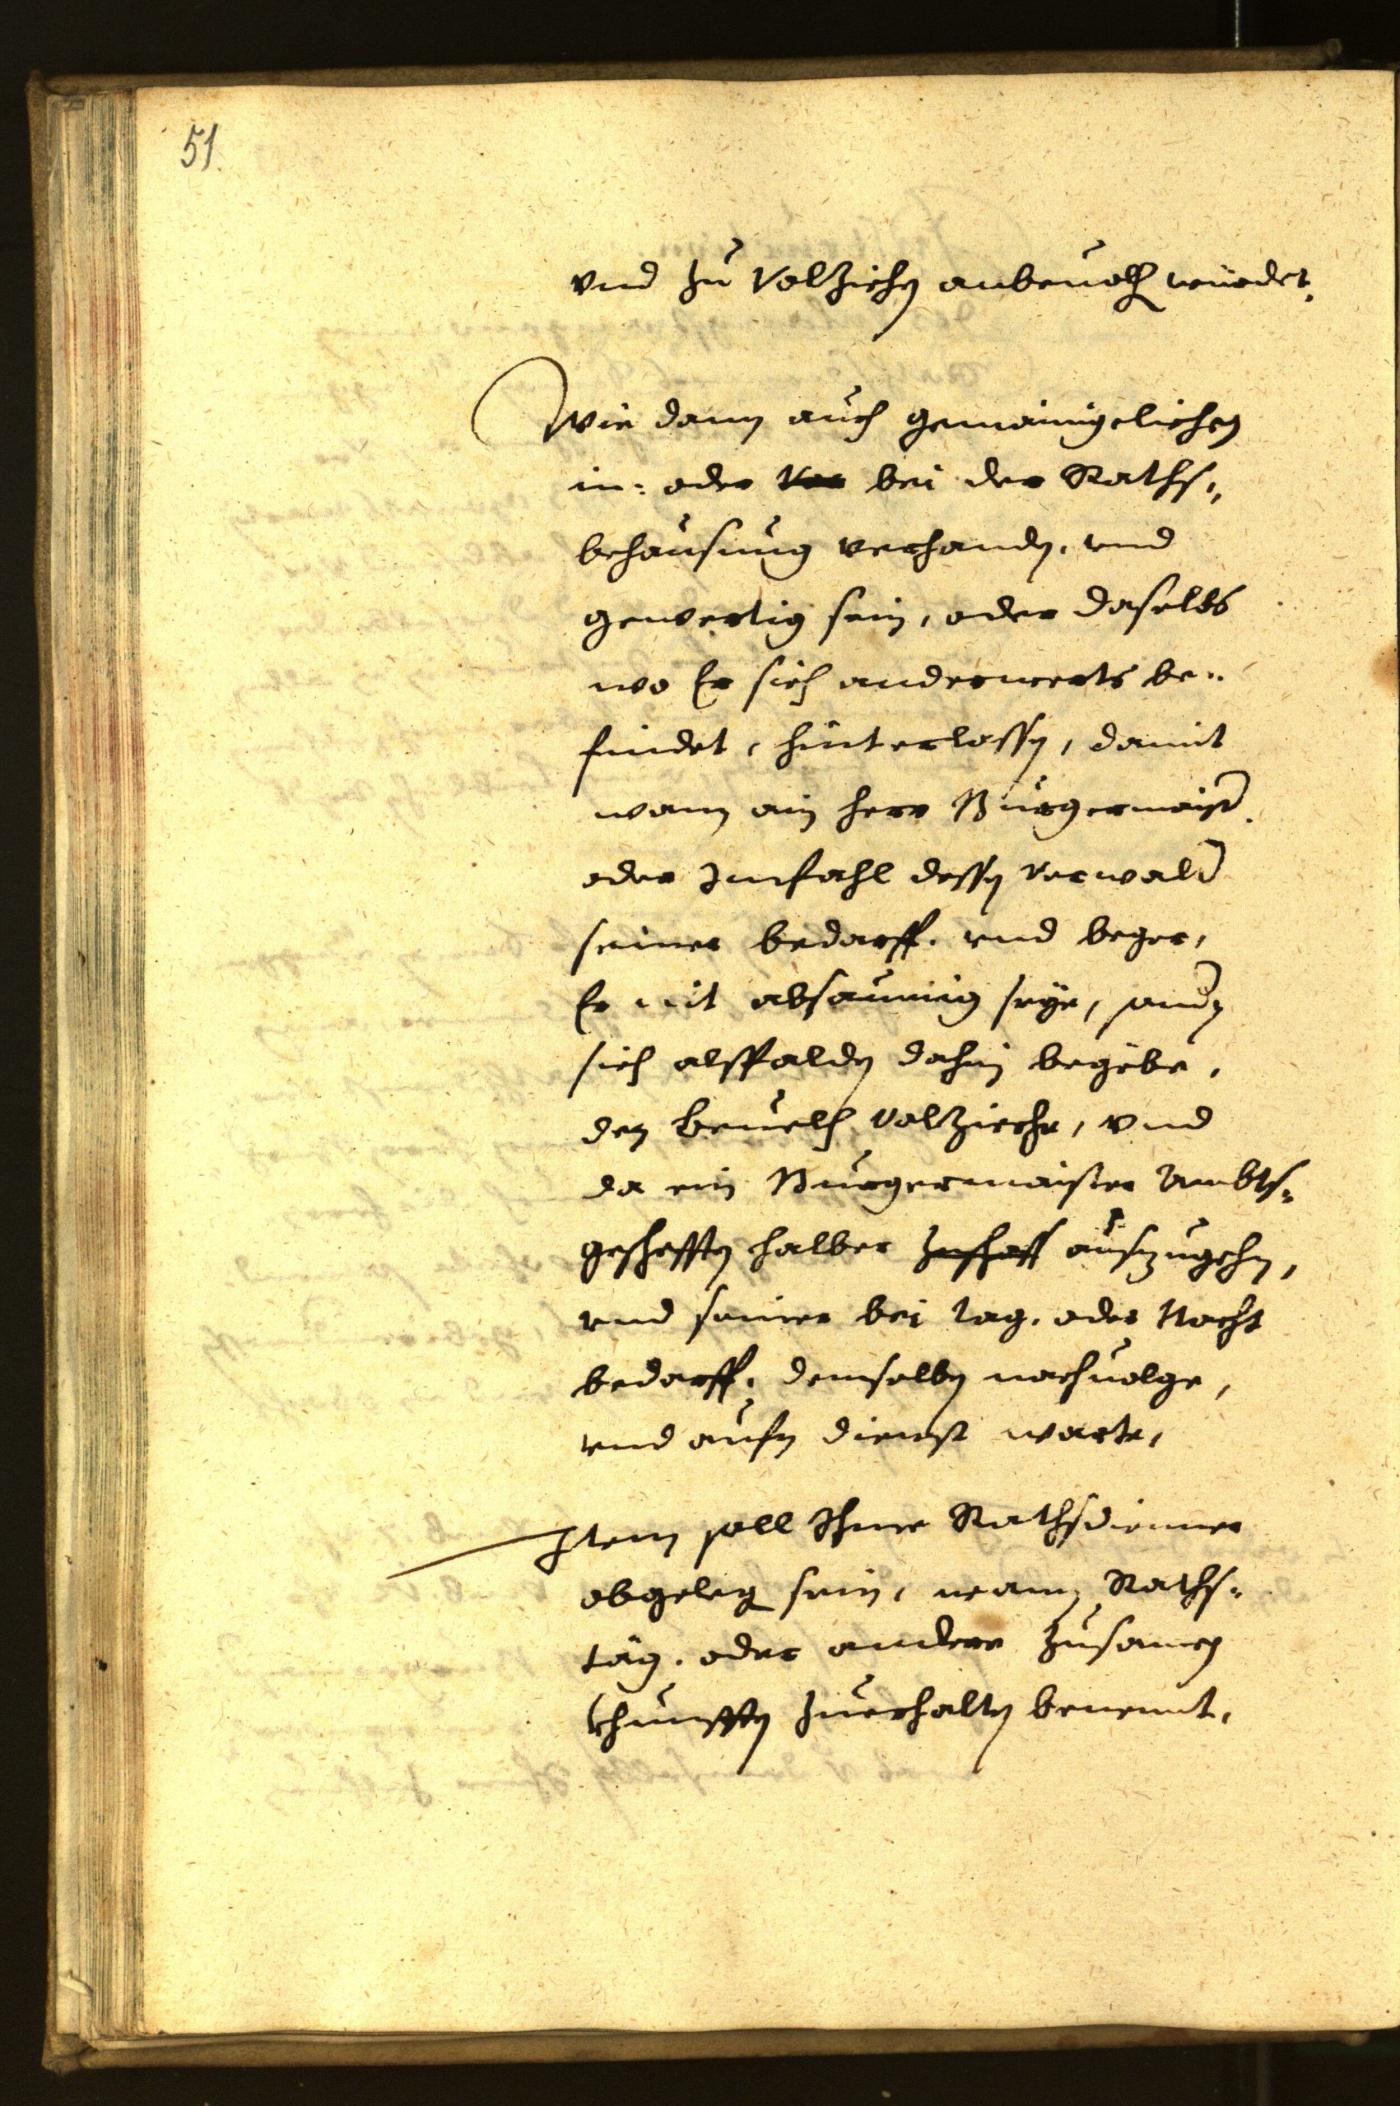 51
vnd zu Volziehen anbeuolh würdet.
Wie dann auch gemainigelichen
in: oder Vor bei der Raths„
behausung verhanden, vnd
gewertig sein, oder daselbs
wo Er sich anderwerts be„
findet, hinterlassen, damit
wann ain herr Burgermaister
oder Imfahl dessen Verwalter
seiner bedarff. vnd beger,
Er nit absaumig seye, sonder
sich alsfalden dahin begebe,
den beuelh Volzieche, vnd
da ein Burgermaister Ambts„
geschefften halber auszugehen,
vnd seiner bei tag. oder Nacht
bedarff, demselben nachuolge,
vnd aufn dienst warte,
Item soll Ihme Rathsdienner
obgelegen sein, wann Raths„
täg. oder andere Zusamen
khunfften zuerhalten benennt,